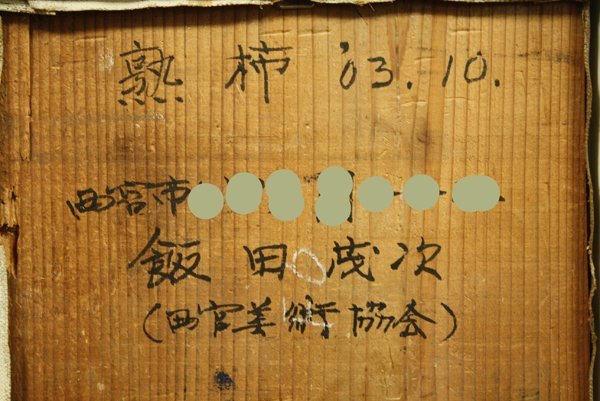 熟柿 '03.10.
西宮市
飯田茂次
(西宮美術協会)